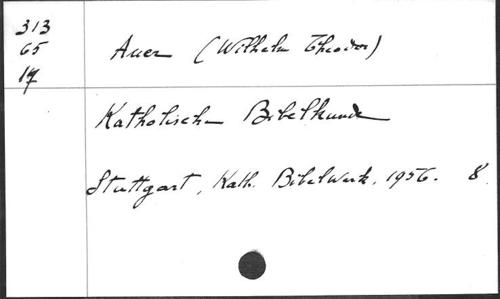 313
65
17
Auer (Wilhelm Theodor)
Katholische Bibelkunde
Stuttgart, Kath. Bibelwerk, 1956. 8